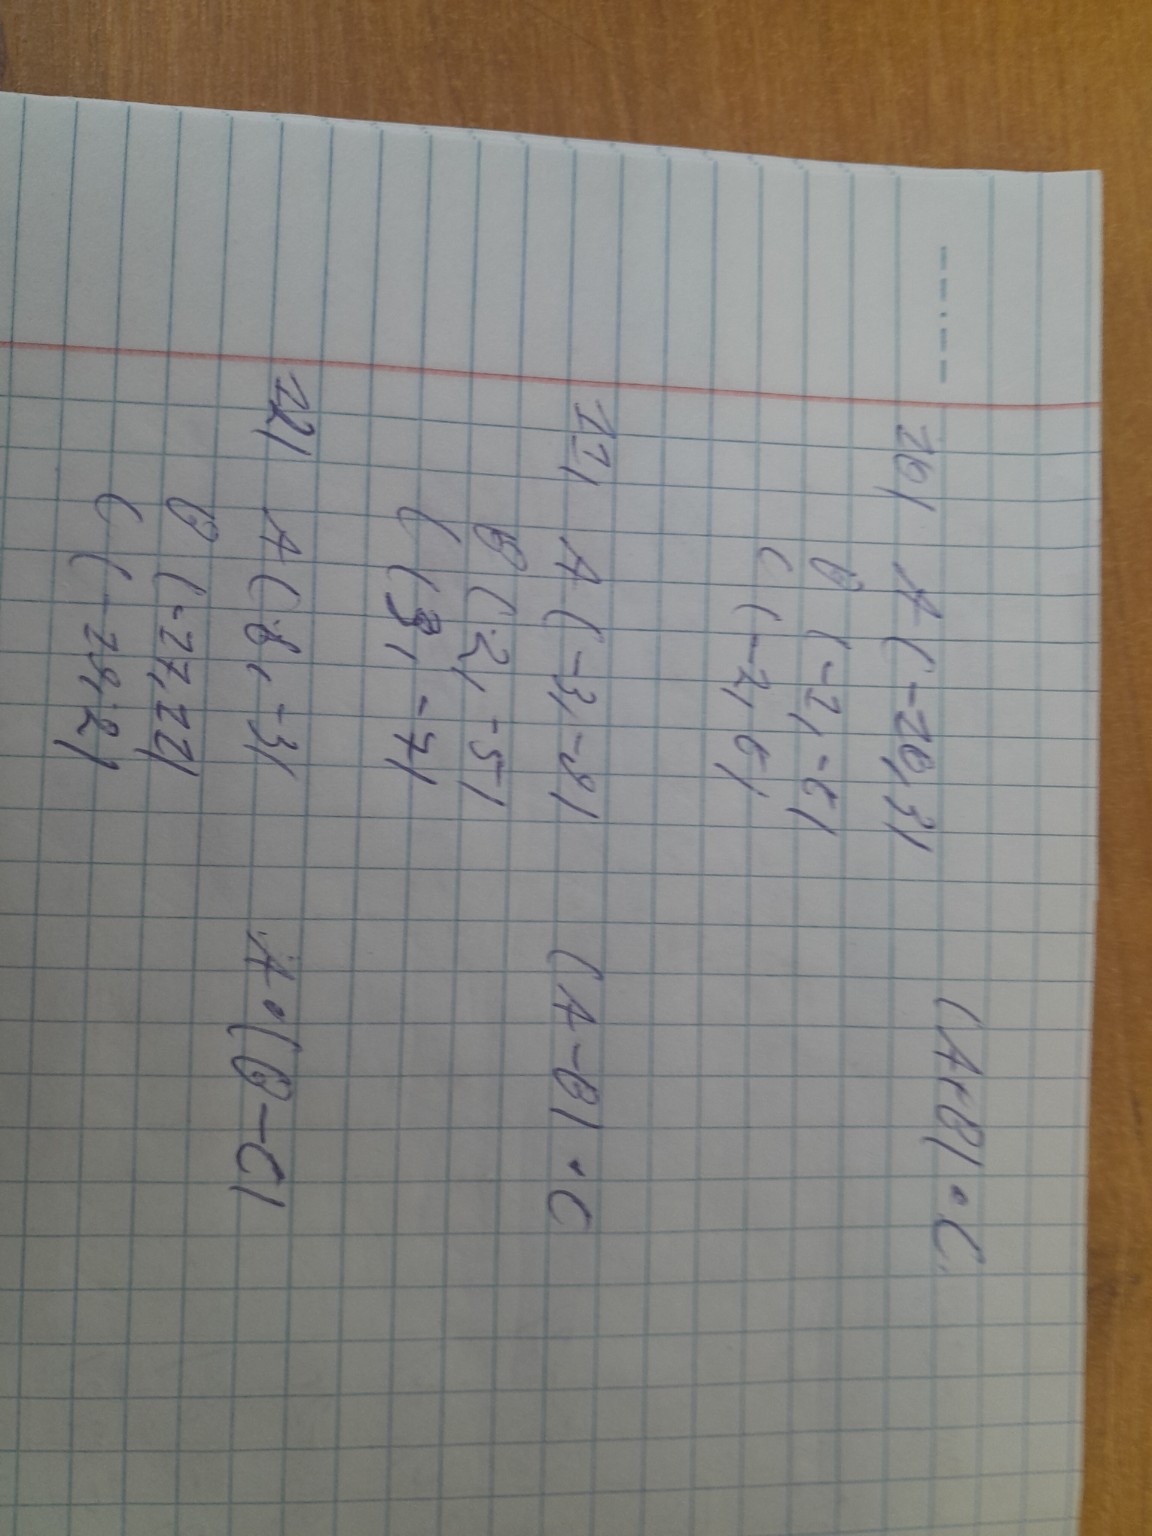 10) A (-10, 3) (A+B) • C
B (-2, -6)
C (-2, 6)
11) A (-3, -8) (A-B) • C
B (2, -5)
C (3, -7)
12) A (8, -3) A • (B-C)
B (-17, 12)
C (-18, 2)